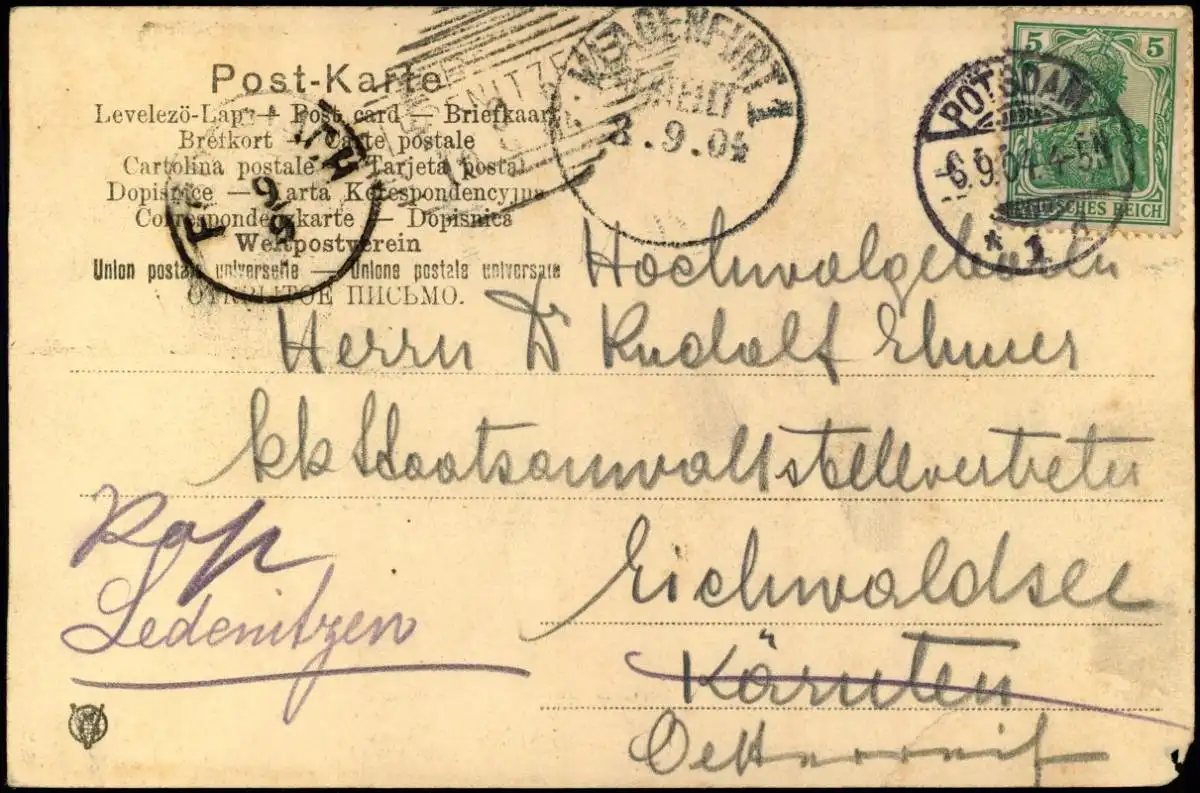 Post-Karte
Levelező-Lap — Post card — Briefkaart
Brefkort — Carte postale
Cartolina postale — Tarjeta postal
Dopisnice — Karta Korespondencyjna
Correspondenzkarte — Dopisnica
Weltpostverein
Union postale universelle — Unione postale universale
ОТКРЫТОЕ ПИСЬМО.
KLAGENFURT 1
8.9.04
POTSDAM
6.9.04.4-5N
* 1 c
5 5
DEUTSCHES REICH
9/9
Hochwolgeboren
Herrn Dr Rudolf
kk Staatsanwaltstellvertreter
Eichwaldsee
Kärnten
Oesterreich
Ledenitzen